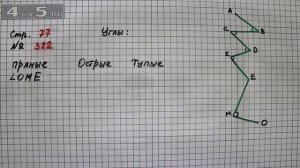 4 на 5.ru
Стр. 77
№ 322
Углы:
прямые Острые Тупые
∠OME
A
C B
D
K
E
M O